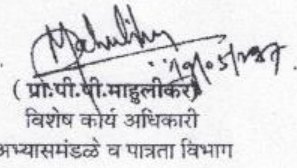 ( प्रा.पी.पी.माहुलीकर)
विशेष कार्य अधिकारी
अभ्यासमंडळे व पात्रता विभाग